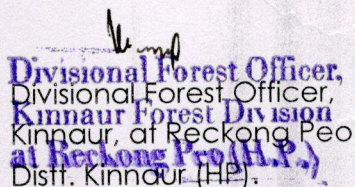 Divisional Forest Officer,
Divisional Forest Officer,
Kinnaur Forest Division
Kinnaur, at Reckong Peo
at Reckong Peo (H.P.)
Distt. Kinnaur (HP).